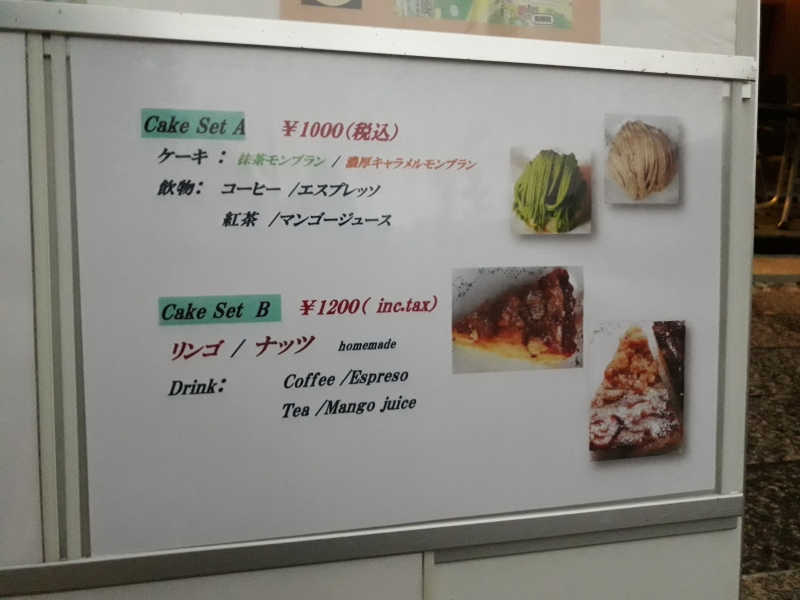 Cake Set A ￥1000(税込)
ケーキ： 抹茶モンブラン / 濃厚キャラメルモンブラン
飲物： コーヒー /エスプレッソ
紅茶 /マンゴージュース
Cake Set B ￥1200( inc.tax)
リンゴ / ナッツ homemade
Drink： Coffee /Espreso
Tea /Mango juice